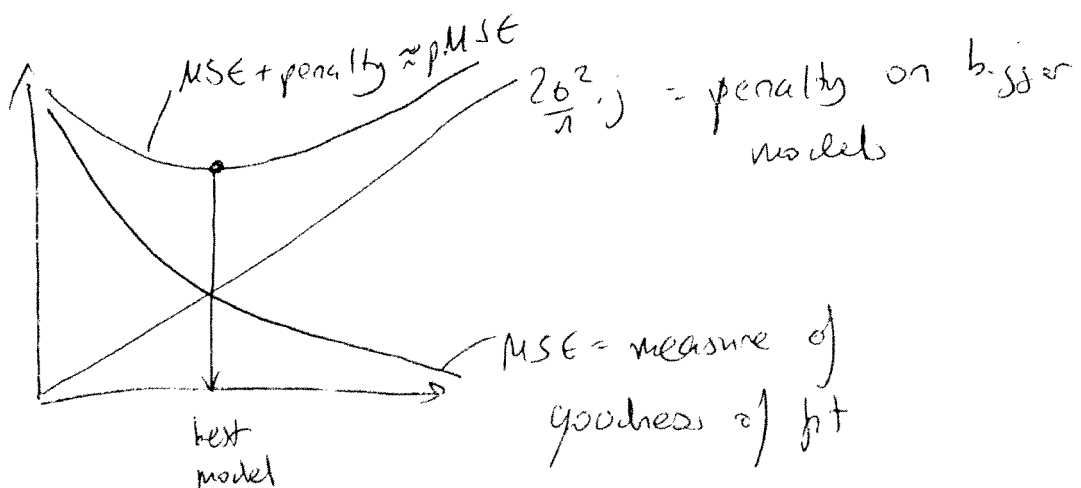 MSE + penalty ≈ pMSE
2σ²/n · j = penalty on bigger
models
MSE = measure of
goodness of fit
best
model